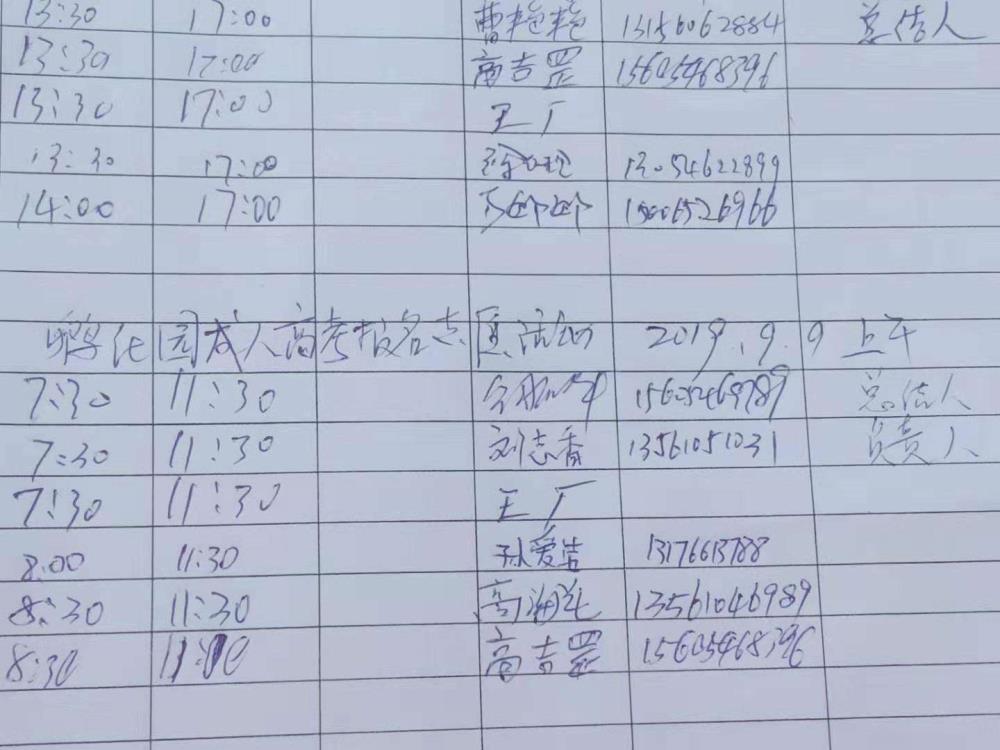 13:30 17:00 曹艳艳 13156062884 总结人
13:30 17:00 高吉罡 15605468396
13:30 17:00 王厂
13:30 17:00 13054622899
14:00 17:00 15006526966
孵化园成人高考报名点 2019.9.9上午
7:30 11:30 15605469789 总结人
7:30 11:30 刘志香 13561051031 负责人
7:30 11:30 王厂
8:00 11:30 孙爱洁 13176613788
8:30 11:30 高 13561046989
8:30 11:00 高吉罡 15605468396